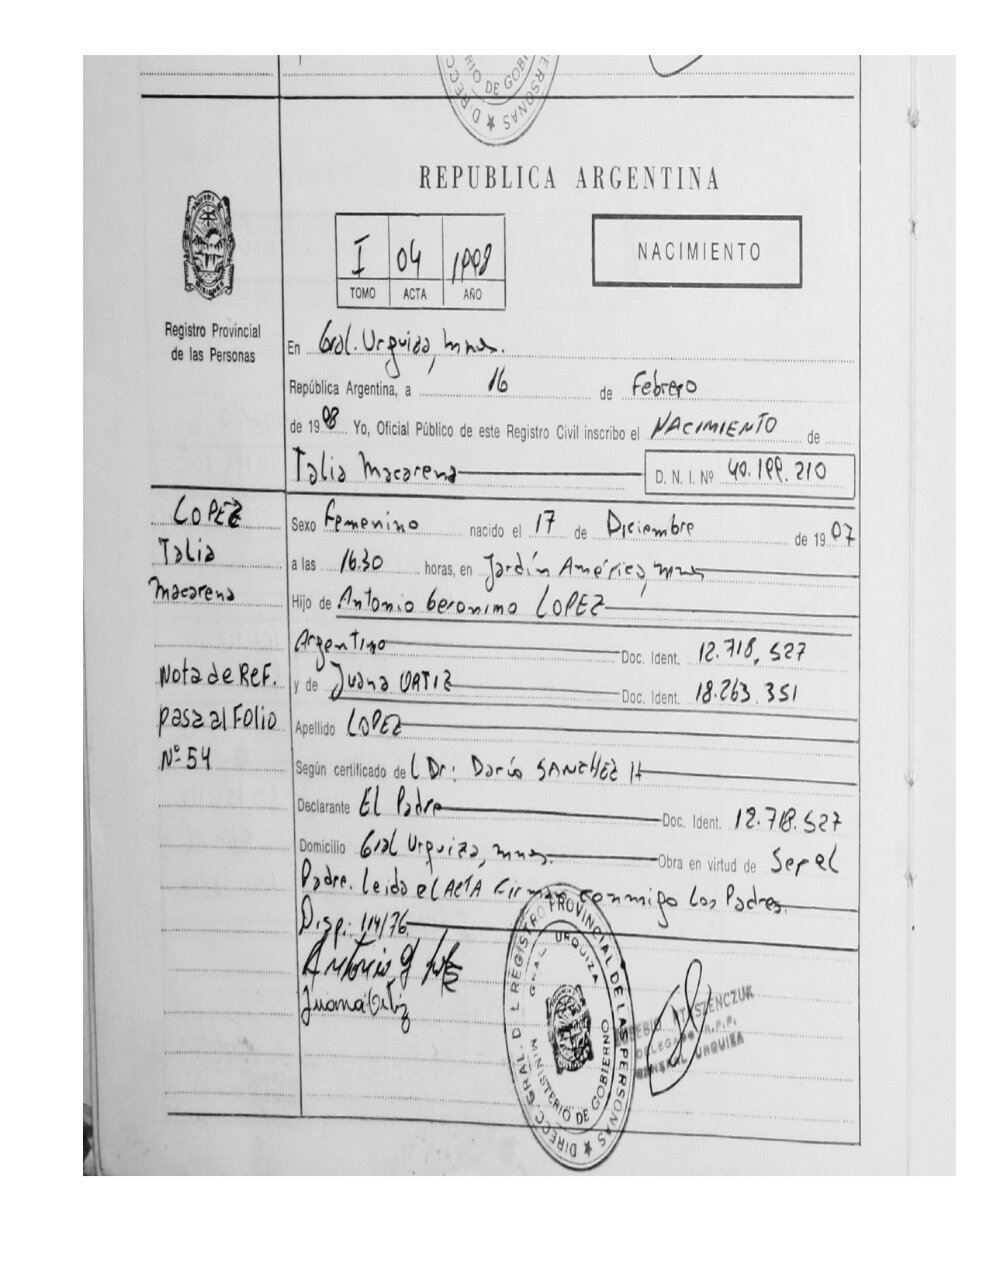 DIRECC.
RIO DE GOBI
PERSONAS
REPUBLICA ARGENTINA
I 04 1998
TOMO ACTA AÑO
NACIMIENTO
Registro Provincial
de las Personas
En Gral. Urquiza, mnes.
República Argentina, a 16 de Febrero
de 1998 Yo, Oficial Público de este Registro Civil inscribo el NACIMIENTO de
Talia Macarena D. N. I. Nº 40.199.210
LOPEZ
Talia
Macarena
Nota de Ref.
pasa al Folio
Nº 54
Sexo Femenino nacido el 17 de Diciembre de 1907
a las 16.30 horas, en Jardín América, mnes
Hijo de Antonio Geronimo LOPEZ
Argentino Doc. Ident. 12.718.527
y de Juana ORTIZ Doc. Ident. 18.263.351
Apellido LOPEZ
Según certificado de l Dr: Darío SANCHEZ H
Declarante El Padre Doc. Ident. 12.718.527
Domicilio Gral Urquiza, mnes. Obra en virtud de Ser el
Padre. Leida el ACTA Firman conmigo Los Padres.
Disp: 114/76
Antonio G
Juana Ortiz
DIRECC. GRAL. D L REGISTRO PROVINCIAL DE LAS PERSONAS
GRAL. URQUIZA
MINISTERIO DE GOBIERNO
DELEGADO R.P.P.
GENERAL URQUIZA